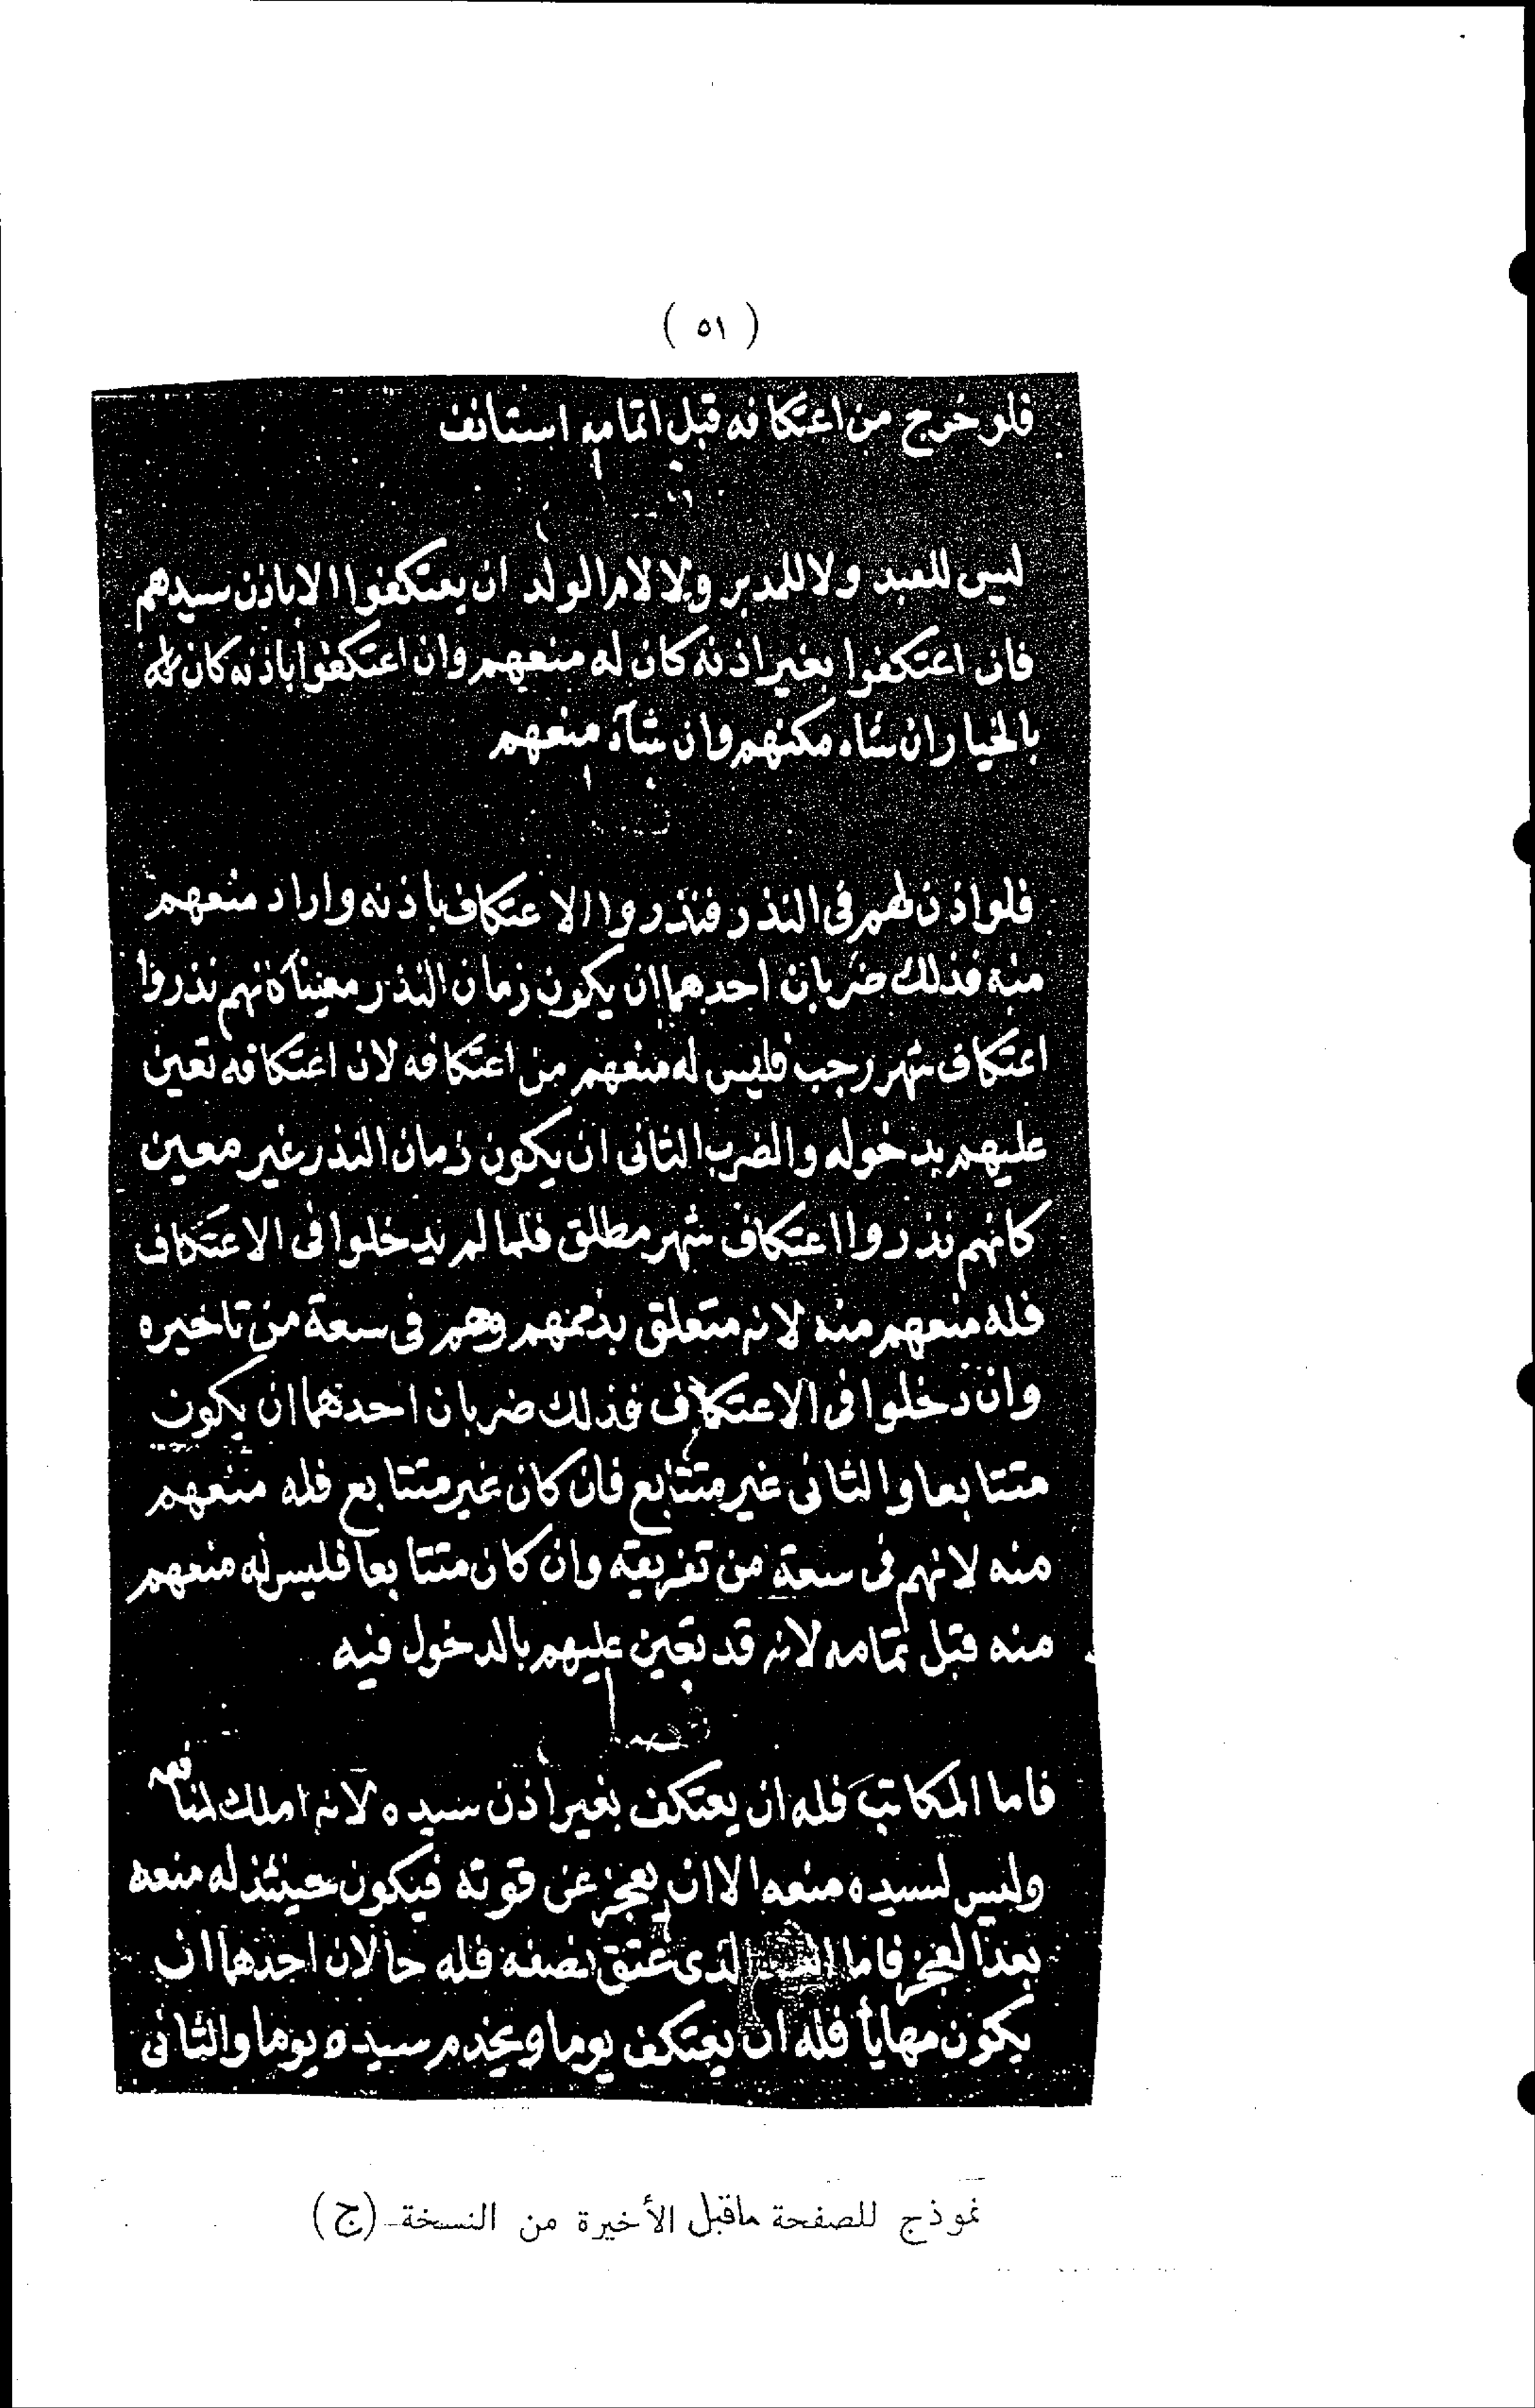 ( ٥١ )
فلو خرج من اعتكافه قبل اتمامه استانف
ليس للعبد ولا للمدبر ولا لام الولد ان يعتكفوا الا باذن سيدهم
فان اعتكفوا بغير اذنه كان له منعهم وان اعتكفوا باذنه كان
بالخيار ان شاء مكنهم وان شآء منعهم
فلو اذن لهم فى النذر فنذروا الاعتكاف باذنه واراد منعهم
منه فذلك ضربان احدهما ان يكون زمان النذر معينا كانهم نذروا
اعتكاف شهر رجب فليس له منعهم من اعتكافه لان اعتكافه تعين
عليهم بدخوله والضرب الثانى ان يكون زمان النذر غير معين
كانهم نذروا اعتكاف شهر مطلق فلما لم يدخلوا فى الاعتكاف
فله منعهم منه لانه متعلق بذممهم وهم فى سعة من تاخيره
وان دخلوا فى الاعتكاف فذلك ضربان احدهما ان يكون
متتابعا والثانى غير متتابع فان كان غير متتابع فله منعهم
منه لانهم فى سعة من تفريقه وان كان متتابعا فليس له منعهم
منه قبل تمامه لانه قد تعين عليهم بالدخول فيه
فصل
فاما المكاتب فله ان يعتكف بغير اذن سيده لانه املك لمنافعه
وليس لسيده منعه الا ان يعجز عن قوته فيكون حينئذ له منعه
بعد العجز فاما الذى عتق نصفه فله حالان احدهما ان
يكون مهايأ فله ان يعتكف يوما ويخدم سيده يوما والثانى
نموذج للصفحة ماقبل الأخيرة من النسخة (ج)